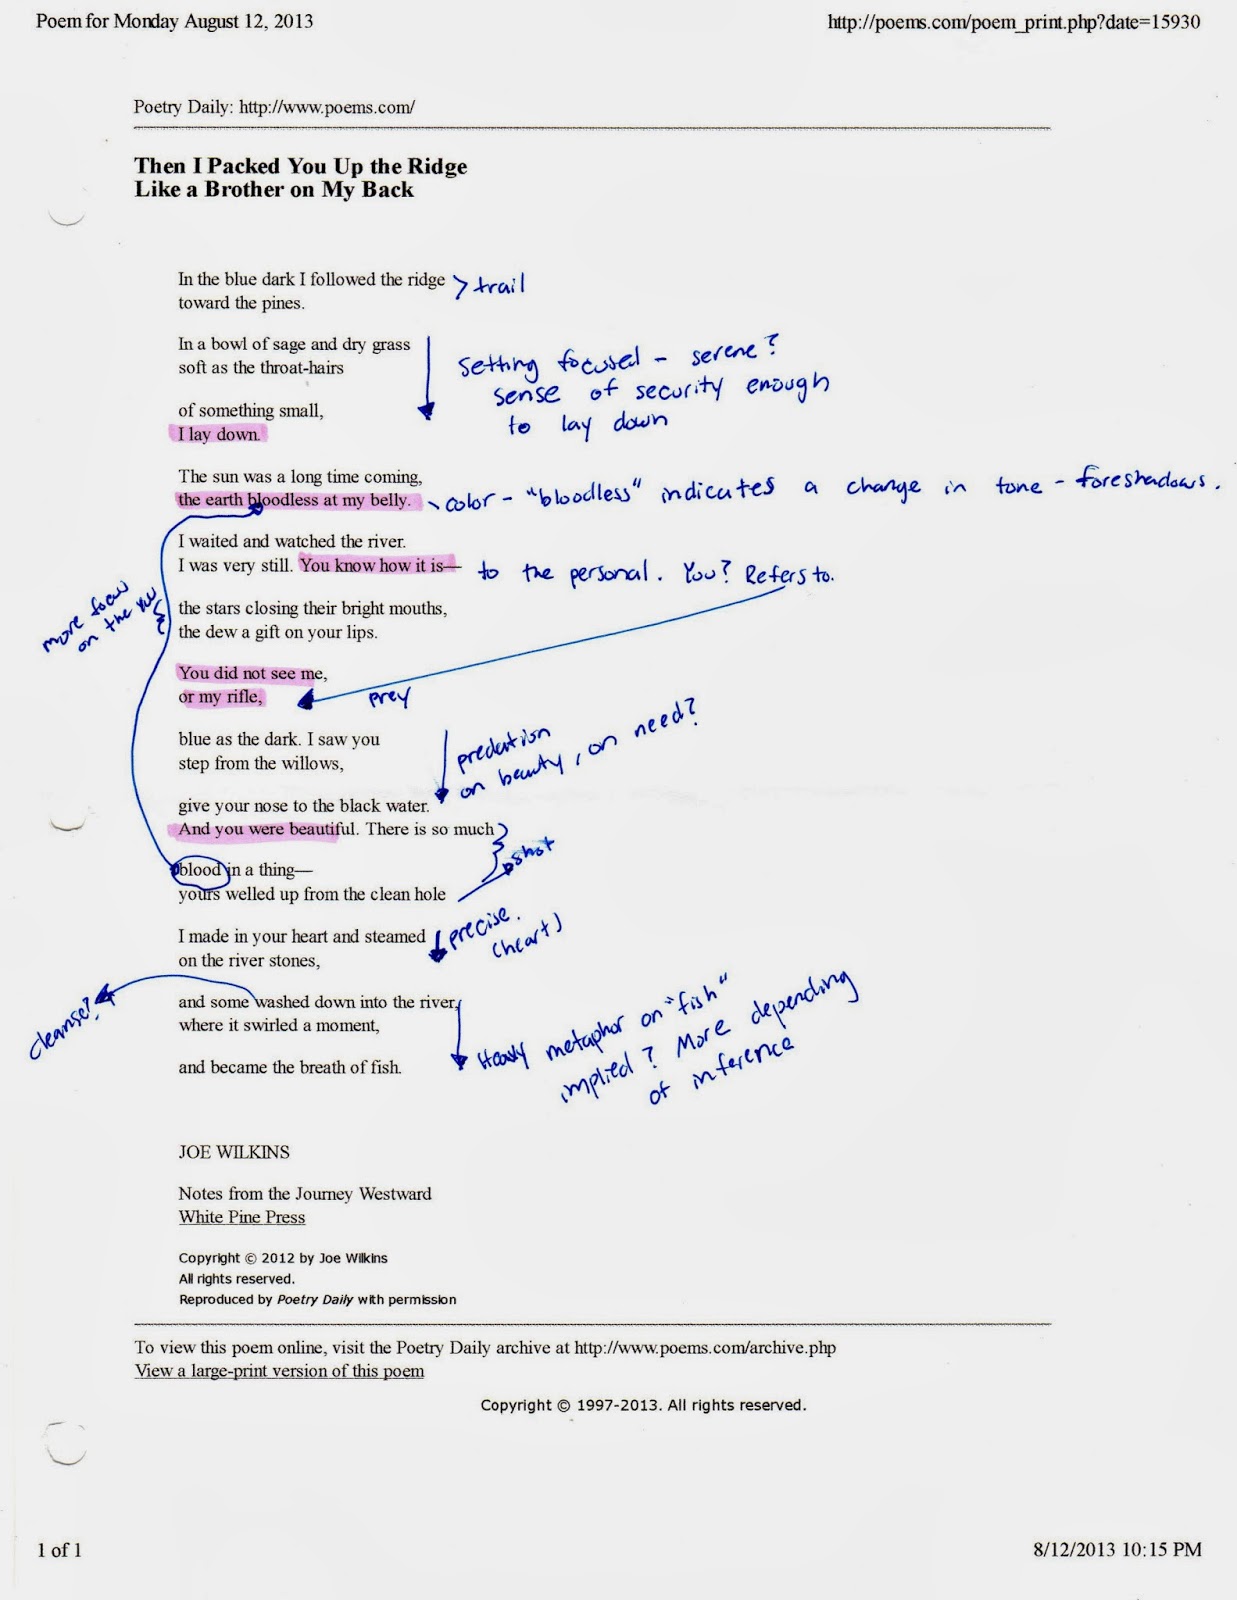 Poem for Monday August 12, 2013 http://poems.com/poem_print.php?date=15930
Poetry Daily: http://www.poems.com/
Then I Packed You Up the Ridge
Like a Brother on My Back
In the blue dark I followed the ridge
toward the pines.
> trail
In a bowl of sage and dry grass
soft as the throat-hairs
setting focused - serene?
sense of security enough
to lay down
of something small,
I lay down.
The sun was a long time coming,
the earth bloodless at my belly.
color - "bloodless" indicates a change in tone - foreshadows.
I waited and watched the river.
I was very still. You know how it is—
to the personal. You? Refers to.
more focus
on the you
the stars closing their bright mouths,
the dew a gift on your lips.
You did not see me,
or my rifle,
prey
blue as the dark. I saw you
step from the willows,
predation
on beauty, on need?
give your nose to the black water.
And you were beautiful. There is so much
shot
blood in a thing—
yours welled up from the clean hole
I made in your heart and steamed
on the river stones,
precise.
(heart)
and some washed down into the river,
where it swirled a moment,
cleanse?
and became the breath of fish.
Heavy metaphor on "fish"
implied? More depending
of inference
JOE WILKINS
Notes from the Journey Westward
White Pine Press
Copyright © 2012 by Joe Wilkins
All rights reserved.
Reproduced by Poetry Daily with permission
To view this poem online, visit the Poetry Daily archive at http://www.poems.com/archive.php
View a large-print version of this poem
Copyright © 1997-2013. All rights reserved.
1 of 1 8/12/2013 10:15 PM